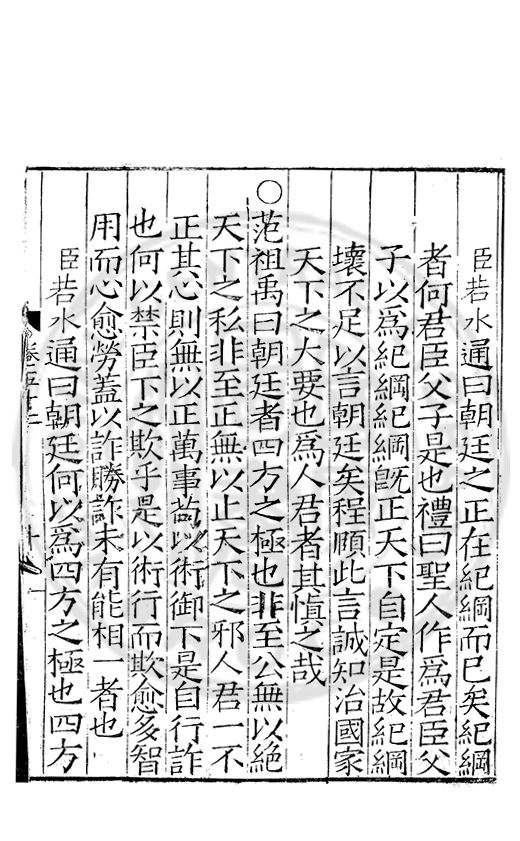 臣若水通曰朝廷之正在紀綱而已矣紀綱
者何君臣父子是也禮曰聖人作爲君臣父
子以爲紀綱紀綱旣正天下自定是故紀綱
壞不足以言朝廷矣程頤此言誠知治國家
天下之大要也爲人君者其愼之哉
○范祖禹曰朝廷者四方之極也非至公無以絕
天下之私非至正無以止天下之邪人君一不
正其心則無以正萬事苟以術御下是自行詐
也何以禁臣下之欺乎是以術行而欺愈多智
用而心愈勞蓋以詐勝詐未有能相一者也
臣若水通曰朝廷何以爲四方之極也四方
卷五十二